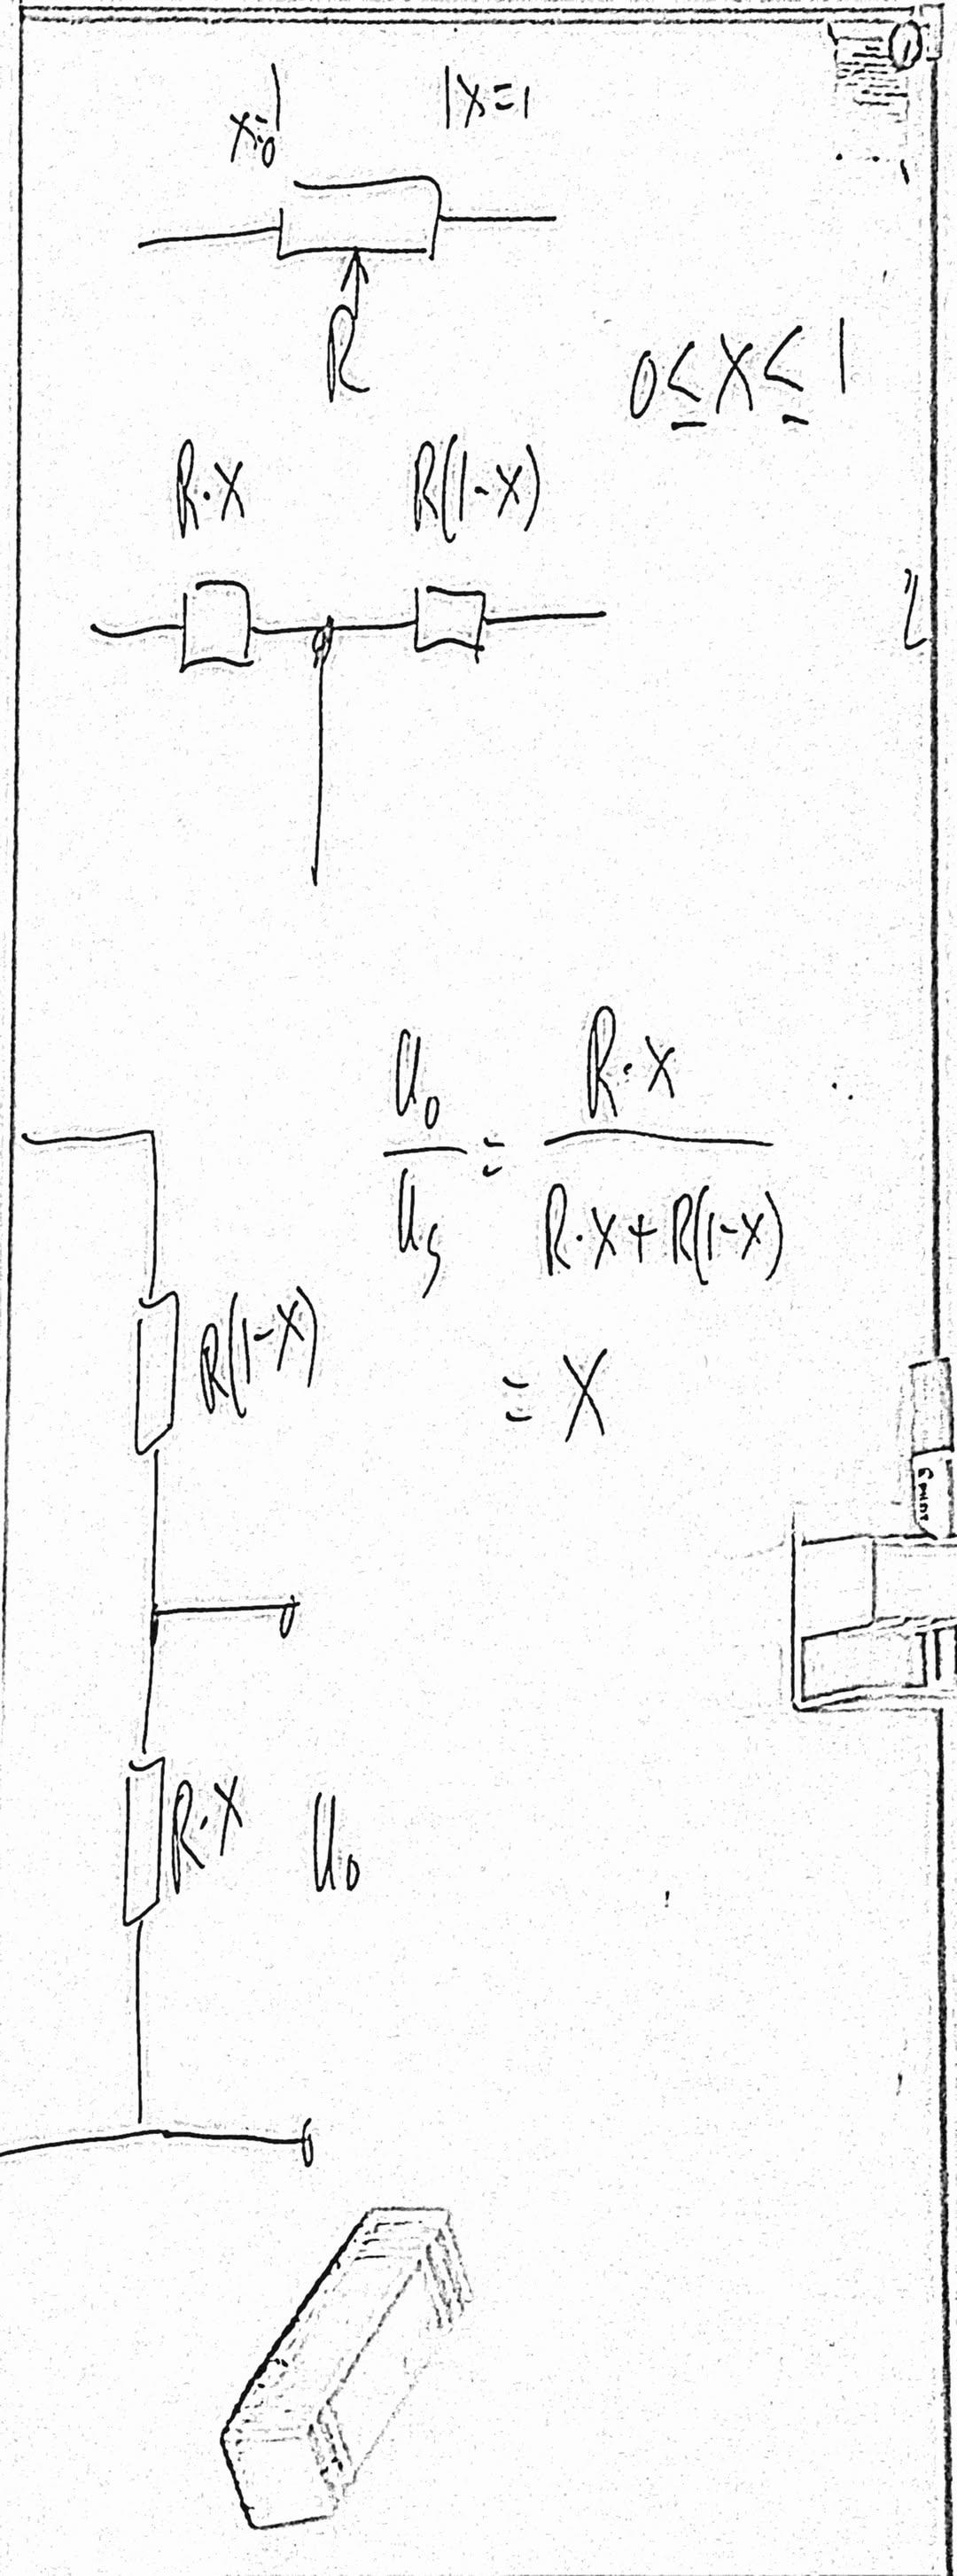 x=0 |x=1
R
0≤x≤1
R·x R(1-x)
U₀/Uₛ = R·x/(R·x+R(1-x))
R(1-x)
= x
R·x U₀